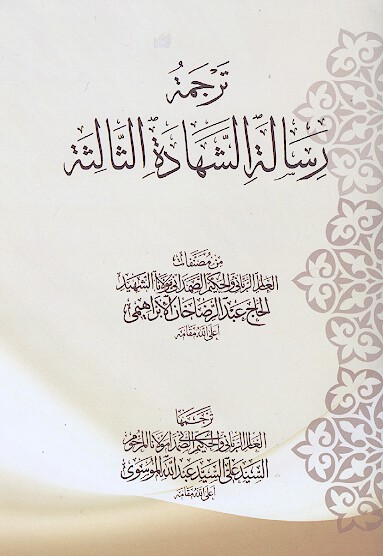 ترجمة
رسالة الشهادة الثالثة
من مصنفات
العالم الرباني والحكيم الصمداني مولانا الشهيد
الحاج عبد الرضا خان الإبراهيمي
أعلى الله مقامه
ترجمها
العالم الرباني والحكيم الصمداني مولانا المرحوم
السيد علي السيد عبد الله الموسوي
أعلى الله مقامه